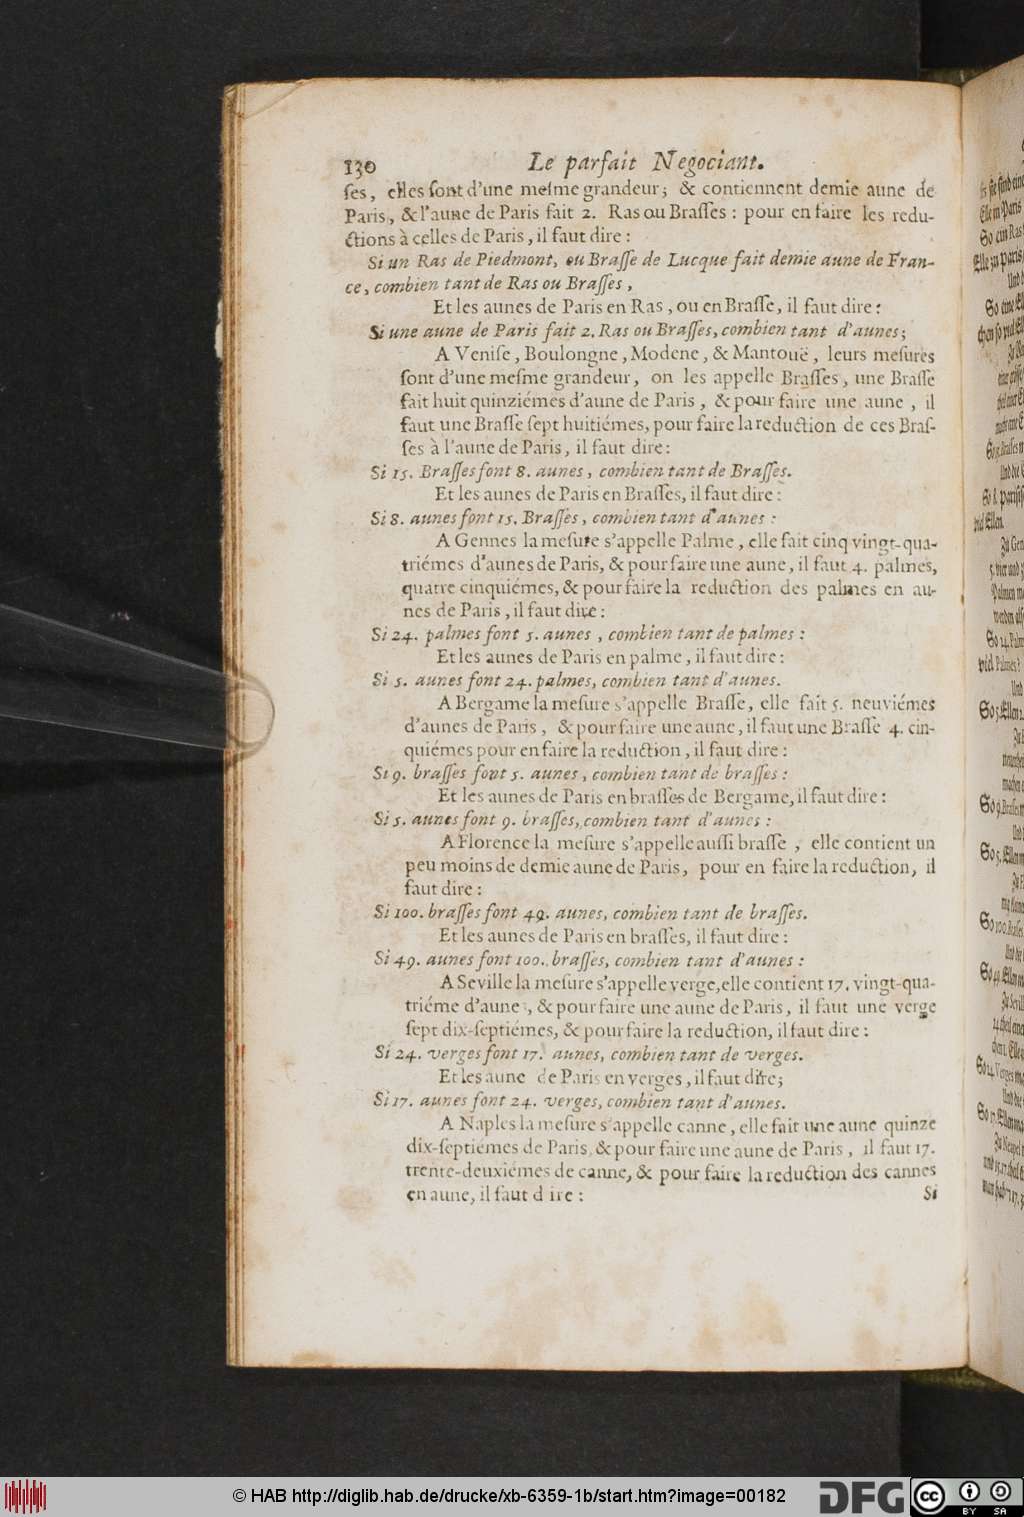 130 Le parfait Negociant.
ſes, elles ſont d'une meſme grandeur; & contiennent demie aune de
Paris, & l'aune de Paris fait 2. Ras ou Braſſes : pour en faire les redu-
ctions à celles de Paris, il faut dire :
Si un Ras de Piedmont, ou Braſſe de Lucque fait demie aune de Fran-
ce, combien tant de Ras ou Braſſes,
Et les aunes de Paris en Ras, ou en Braſſe, il faut dire :
Si une aune de Paris fait 2. Ras ou Braſſes, combien tant d'aunes;
A Veniſe, Boulongne, Modene, & Mantouë, leurs meſures
ſont d'une meſme grandeur, on les appelle Braſſes, une Braſſe
fait huit quinziémes d'aune de Paris, & pour faire une aune, il
faut une Braſſe ſept huitiémes, pour faire la reduction de ces Braſ-
ſes à l'aune de Paris, il faut dire :
Si 15. Braſſes font 8. aunes, combien tant de Braſſes.
Et les aunes de Paris en Braſſes, il faut dire :
Si 8. aunes font 15. Braſſes, combien tant d'aunes :
A Gennes la meſure s'appelle Palme, elle fait cinq vingt-qua-
triémes d'aunes de Paris, & pour faire une aune, il faut 4. palmes,
quatre cinquiémes, & pour faire la reduction des palmes en au-
nes de Paris, il faut dire :
Si 24. palmes font 5. aunes, combien tant de palmes :
Et les aunes de Paris en palme, il faut dire :
Si 5. aunes font 24. palmes, combien tant d'aunes.
A Bergame la meſure s'appelle Braſſe, elle fait 5. neuviémes
d'aunes de Paris, & pour faire une aune, il faut une Braſſe 4. cin-
quiémes pour en faire la reduction, il faut dire :
Si 9. braſſes font 5. aunes, combien tant de braſſes :
Et les aunes de Paris en braſſes de Bergame, il faut dire :
Si 5. aunes font 9. braſſes, combien tant d'aunes :
A Florence la meſure s'appelle auſſi braſſe, elle contient un
peu moins de demie aune de Paris, pour en faire la reduction, il
faut dire :
Si 100. braſſes font 49. aunes, combien tant de braſſes.
Et les aunes de Paris en braſſes, il faut dire :
Si 49. aunes font 100. braſſes, combien tant d'aunes :
A Seville la meſure s'appelle verge, elle contient 17. vingt-qua-
triéme d'aune, & pour faire une aune de Paris, il faut une verge
ſept dix-ſeptiémes, & pour faire la reduction, il faut dire :
Si 24. verges font 17. aunes, combien tant de verges.
Et les aune de Paris en verges, il faut dire;
Si 17. aunes font 24. verges, combien tant d'aunes.
A Naples la meſure s'appelle canne, elle fait une aune quinze
dix-ſeptiémes de Paris, & pour faire une aune de Paris, il faut 17.
trente-deuxiémes de canne, & pour faire la reduction des cannes
en aune, il faut d ire :
Si
© HAB http://diglib.hab.de/drucke/xb-6359-1b/start.htm?image=00182
DFG
cc BY SA